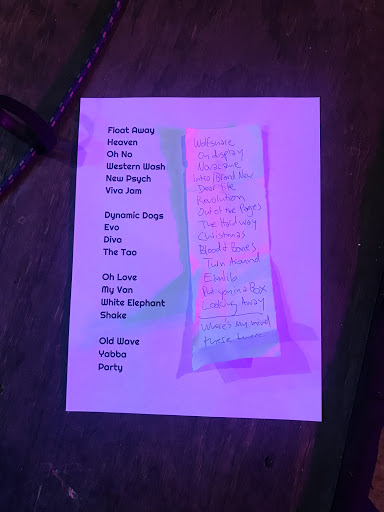 Float Away
Heaven
Oh No
Western Wash
New Psych
Viva Jam
Dynamic Dogs
Evo
Diva
The Tao
Oh Love
My Van
White Elephant
Shake
Old Wave
Yabba
Party
Wolfsnare
On display
Novacaine
Intro/Brand New
Dear
Revolution
Out of the Pages
The Hard Way
Christmas
Blood & Bones
Turn Around
Put you in a Box
Looking Away
Where's my mind
these